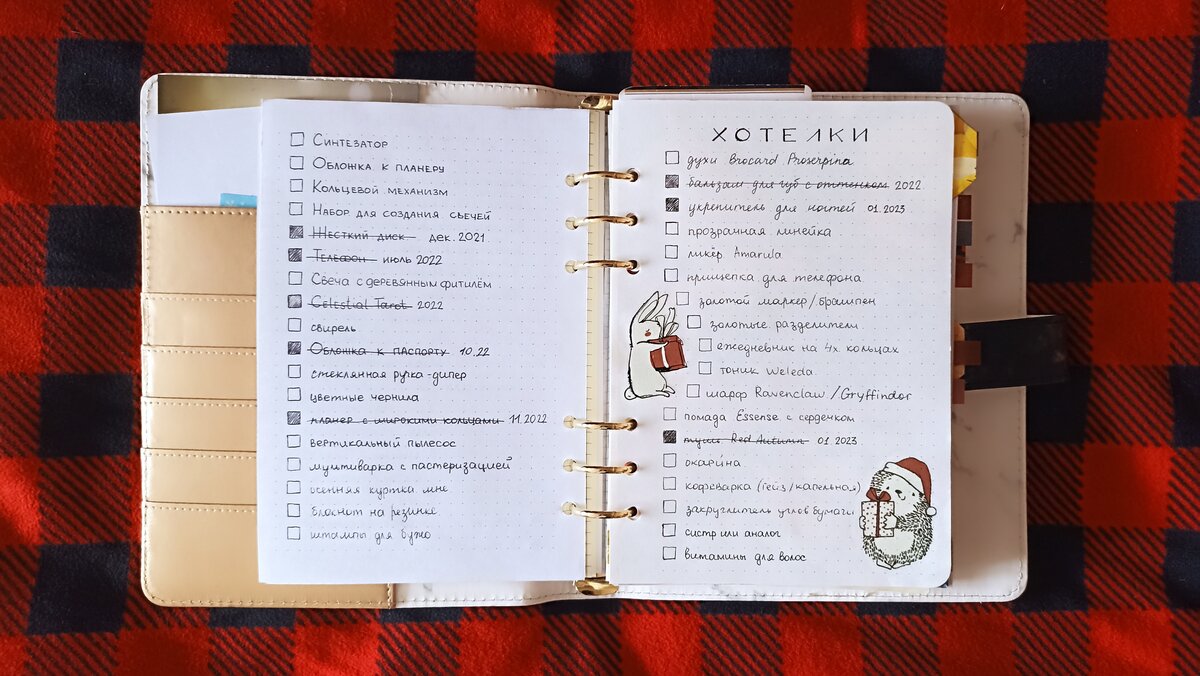 Синтезатор
Обложка к планеру
Кольцевой механизм
Набор для создания свечей
Жесткий диск дек. 2021
Телефон июль 2022
Свеча с деревянным фитилём
Celestial Tarot 2022
свирель
Обложка к паспорту 10.22
стеклянная ручка-дипер
цветные чернила
планер с широкими кольцами 11.2022
вертикальный пылесос
мультиварка с пастеризацией
осенняя куртка мне
блокнот на резинке
штампы для бужо
ХОТЕЛКИ
духи Brocard Proserpina
бальзам для губ с оттенком 2022
укрепитель для ногтей 01.2023
прозрачная линейка
ликёр Amarula
прищепка для телефона
золотой маркер/брашпен
золотые разделители
ежедневник на 4х кольцах
тоник Weleda
шарф Ravenclaw/Gryffindor
помада Essense с сердечком
Red Autumn 01.2023
окарина
кофеварка (гейз/капельная)
закруглитель углов бумаги
систр или аналог
витамины для волос